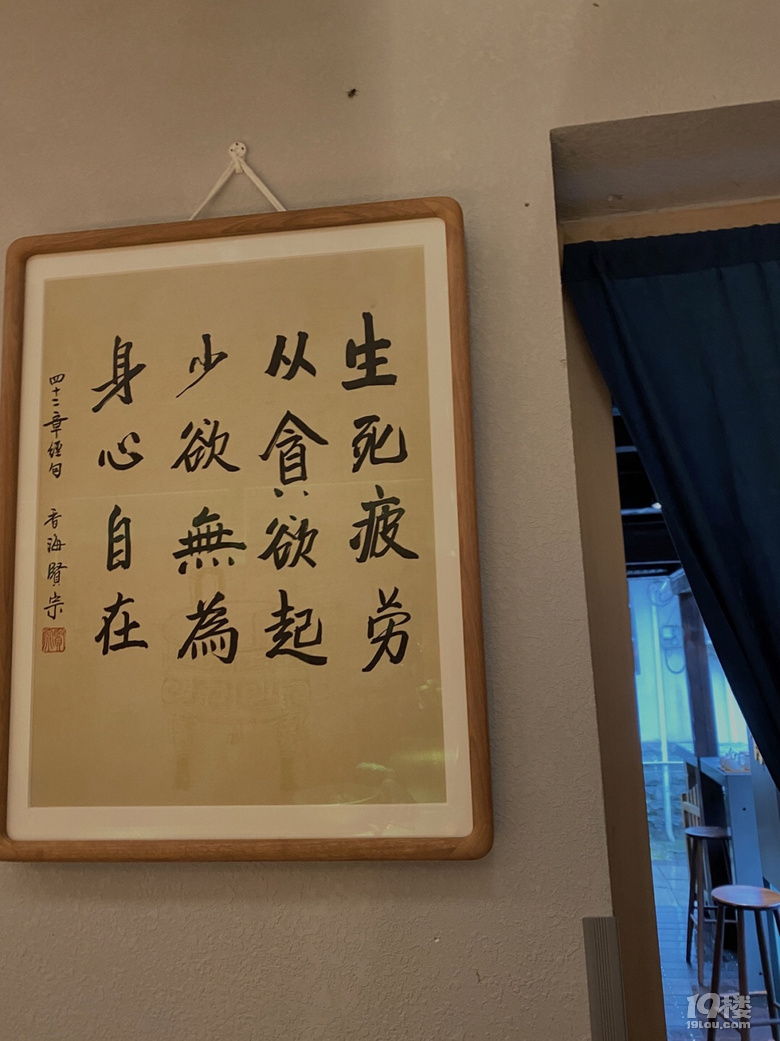 生死疲劳
从貪欲起
少欲無為
身心自在
四十二章經句 香海賢宗
19楼
19lou.com